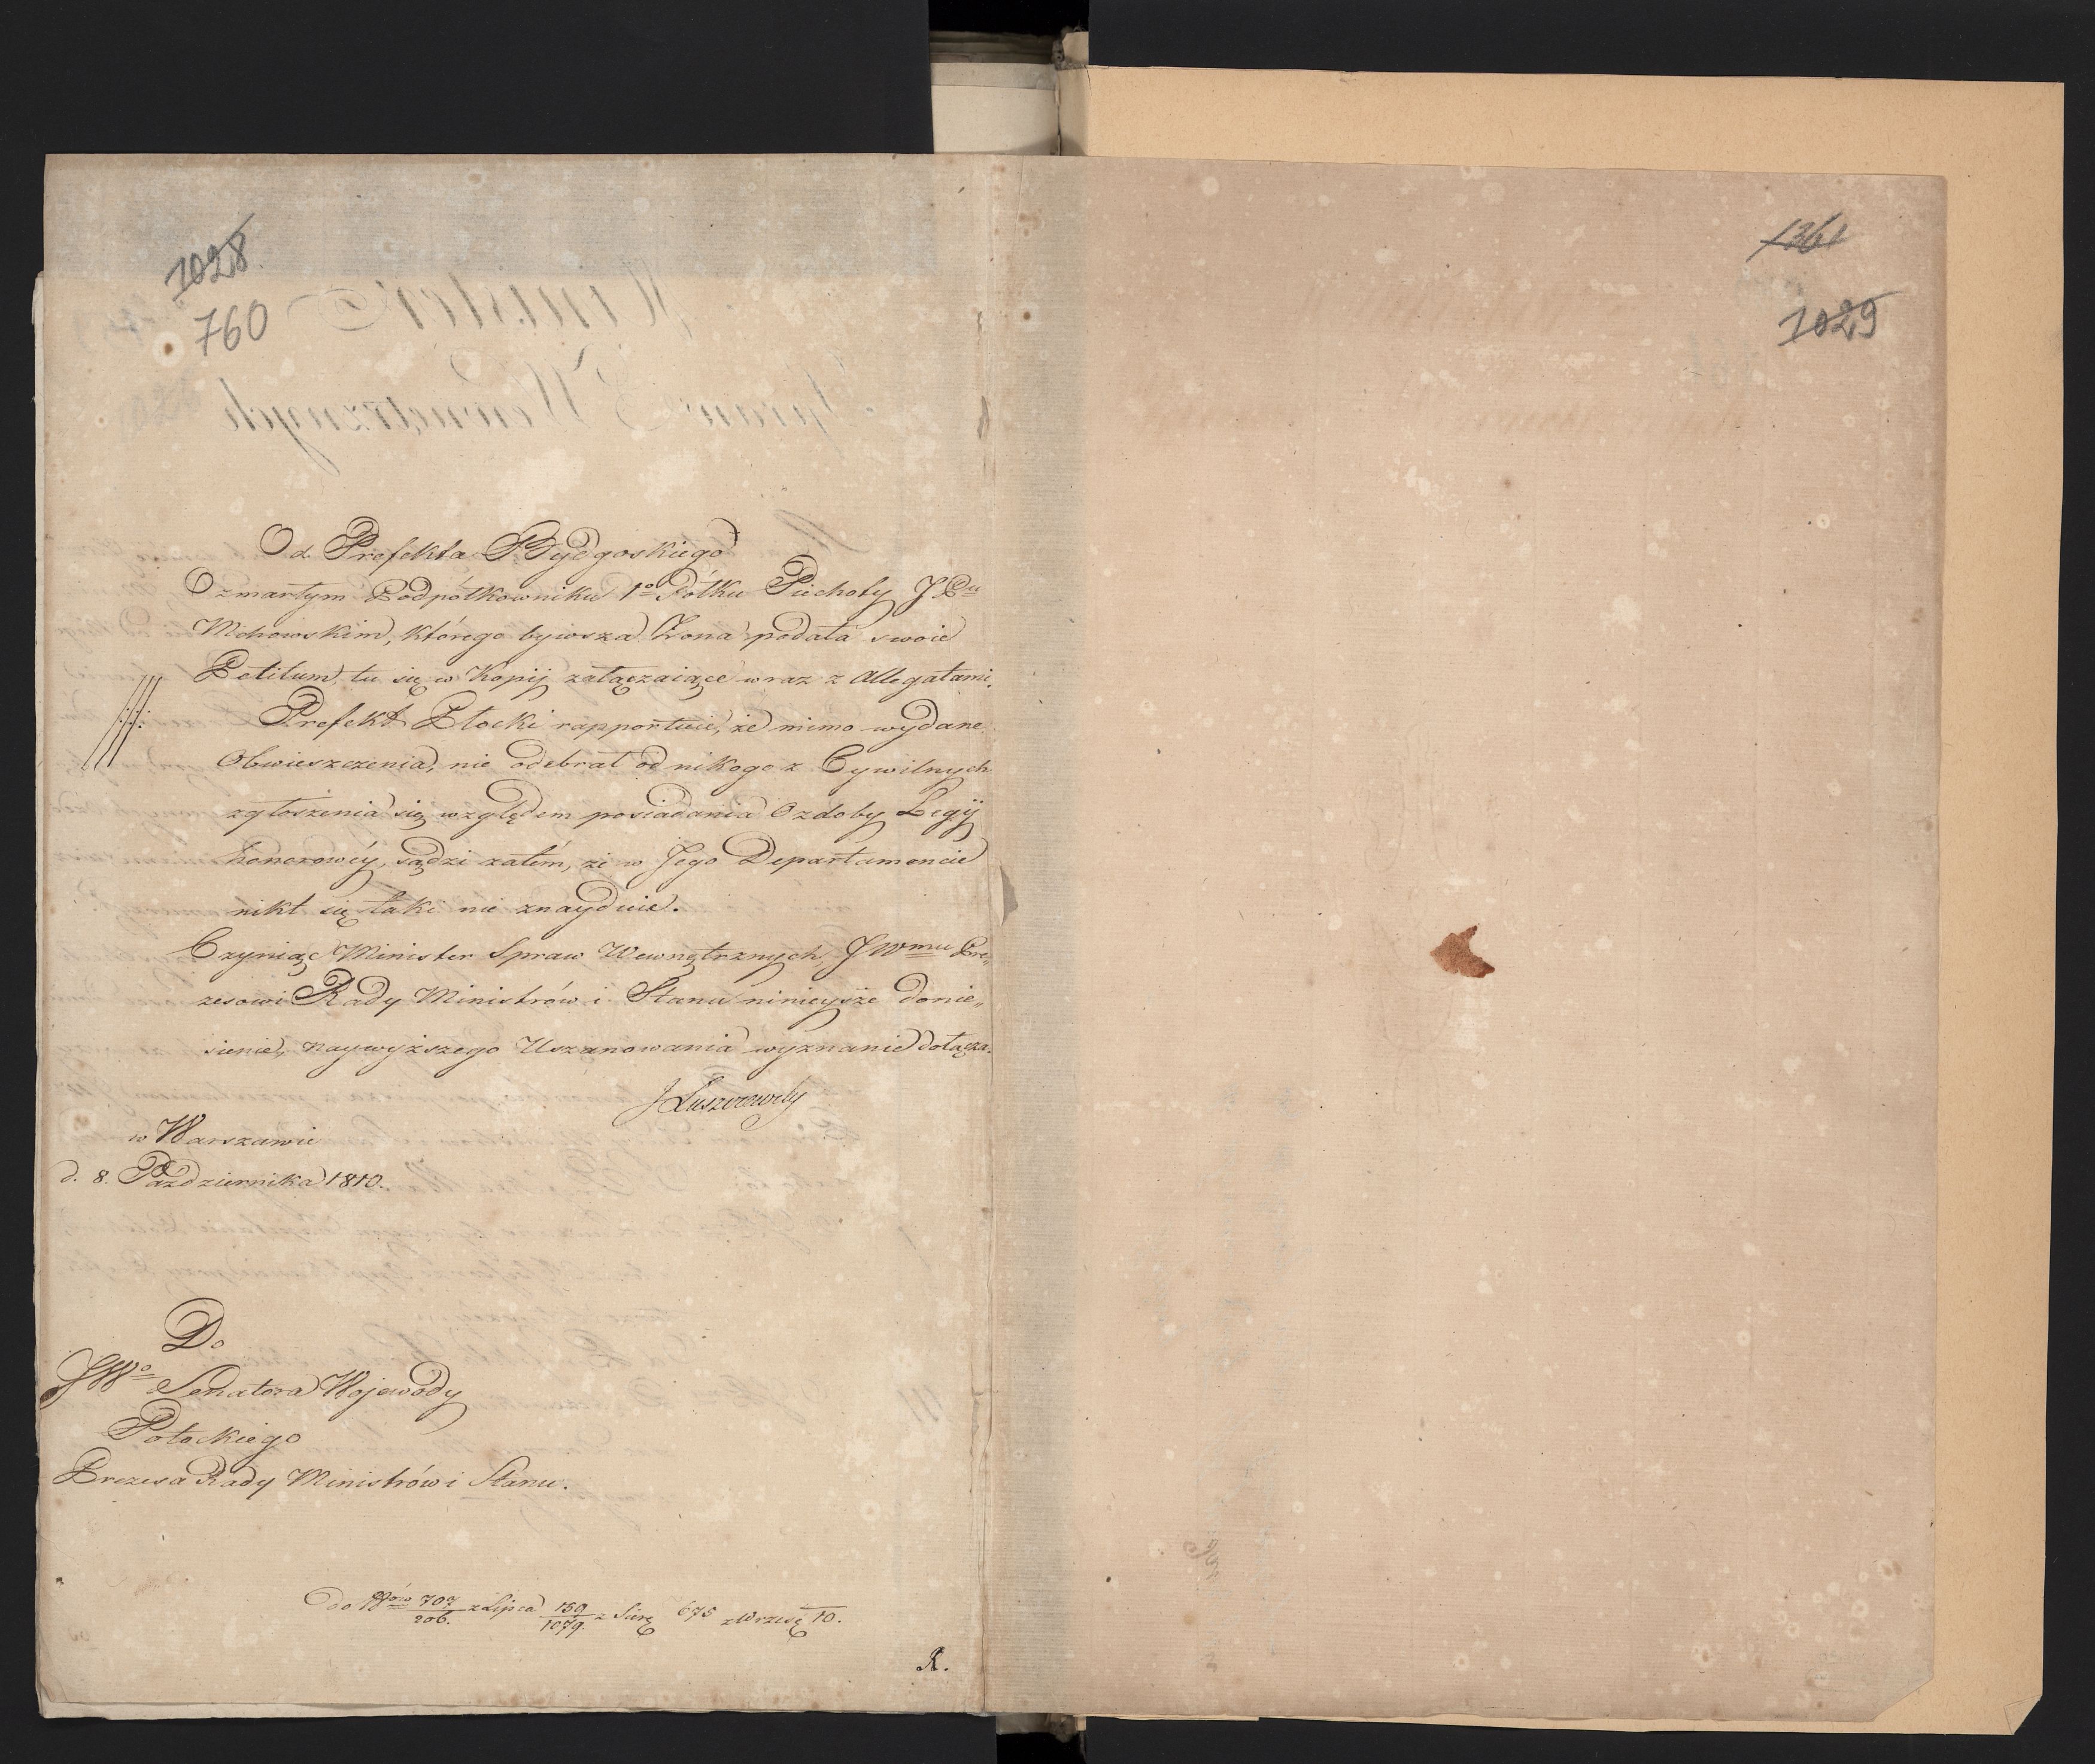 1028
760
Od Prefekta Bydgoskiego
O zmarłym Podpółkowniku 1º Półku Piechoty J Pu
Mchowskim, którego bywsza Żona podała swoie
Petitum, tu się w Kopij załączaiące wraz z Allegatami.
Prefekt Płocki rapportuie, że mimo wydane
Obwieszczenia, nie odebrał od nikogo z Cywilnych
zgłoszenia się względem posiadania Ozdoby Legij
honorowéy, sądzi zatém, że w Jego Departamencie
nikt się taki nie znayduie.
Czyniąc Minister Spraw Wewnętrznych, JWmu Pre„
zesowi Rady Ministrów i Stanu ninieysze donie„
sienie, naywyższego Uszanowania wyznanie dołącza.
J Łuszczewsky
w Warszawie
d. 8. Października 1810.
Do
JWº Senatora Wojewody
Potockiego
Prezesa Rady Ministrów i Stanu.
707/206. z Lipca 159/1079. z Sierp 675 z Wrześ 10.
R.
1361
1029